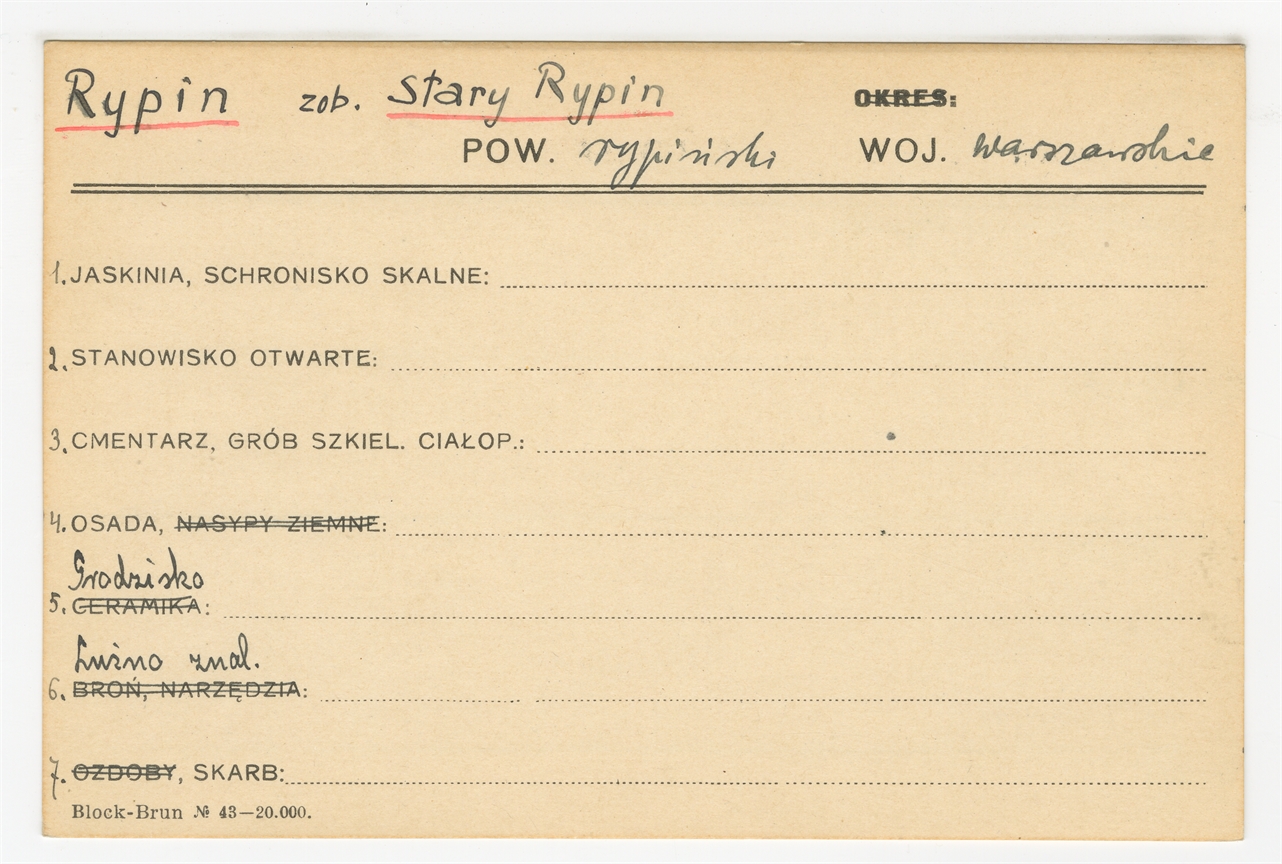 Rypin zob. Stary Rypin OKRES:
POW. rypiński WOJ. warszawskie
1. JASKINIA, SCHRONISKO SKALNE:
2. STANOWISKO OTWARTE:
3. CMENTARZ, GRÓB SZKIEL. CIAŁOP.:
4. OSADA, NASYPY ZIEMNE:
Grodzisko
5. CERAMIKA:
Luźno znal.
6. BROŃ, NARZĘDZIA:
7. OZDOBY, SKARB:
Block-Brun № 43—20.000.